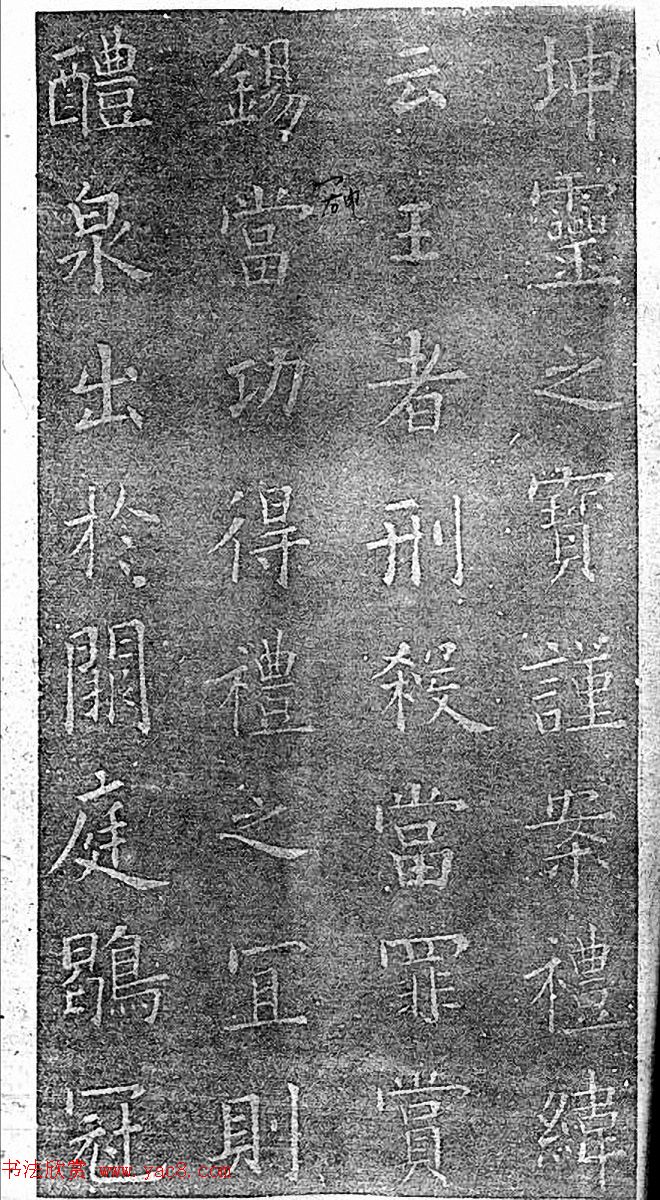 坤靈之寶謹案禮緯
云王者刑殺當罪賞
錫當功得禮之宜則
醴泉出於闕庭鶡冠
书法欣赏 www.yac8.com